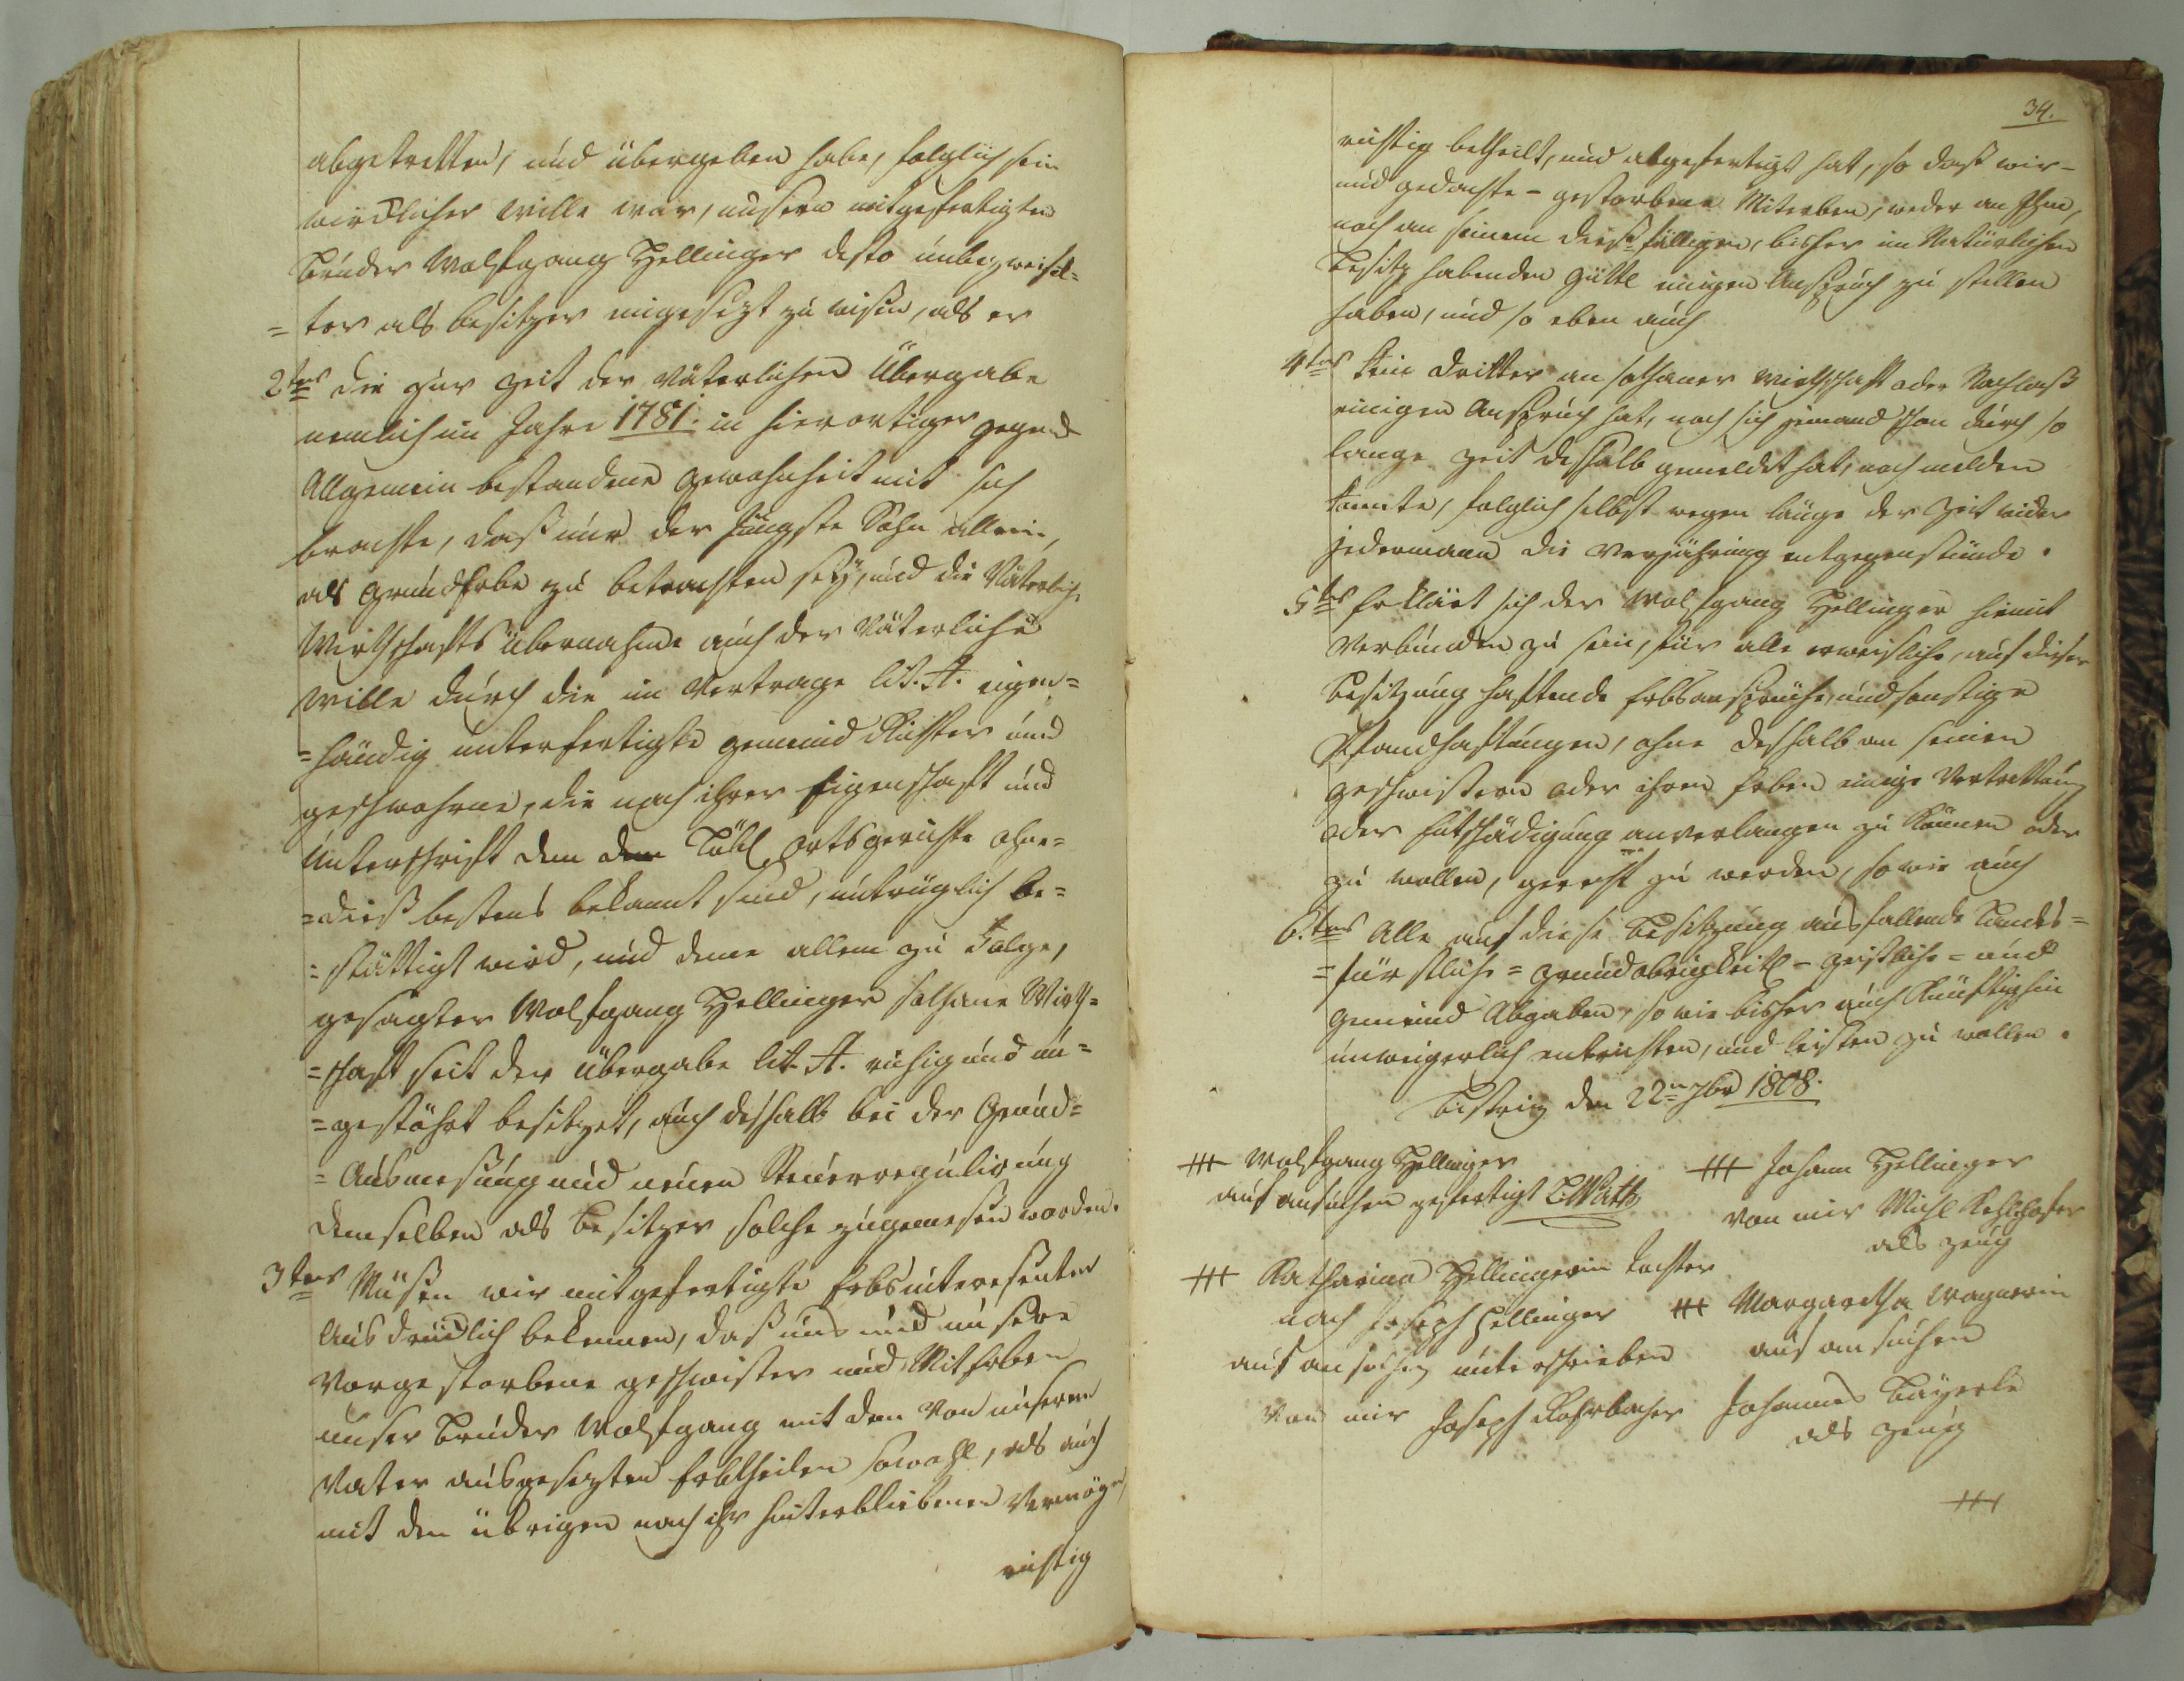 abgetretten, und übergeben habe, folglich sein
wircklicher Wille war, unsern mitgefertigten
Bruder Wolfgang Hellinger desto unbezweifel=
=ter als Besitzer eingesezt zu wissen, als er
2tens die zur Zeit der Väterlichen Übergabe
nemlich im Jahre 1781. in hierortiger Gegend
Allgemein bestandene Gewohnheit mit sich
brachte, daß nur der Jüngste Sohn allein,
als Grunderbe zu betrachten seÿ, und die Väterliche
Wirthschafts übernahme auch der Väterliche
Wille durch die im Vertrage lit. A. eigen=
=händig unterfertigte Gemeind Richter und
Geschwohrne, die nach ihrer Eigenschaft und
Unterschrift dem Löbl. Ortsgerichte ohne=
=dieß bestens bekannt sind, untrüglich be=
=stättigt wird, und deme allem zu Folge,
gesagter Wolfgang Hellinger solhane Wirth=
=schaft seit der Übergabe lit. A. ruhig und un=
=gestöhrt besitzet, auch deßhalb bei der Grund=
=Ausmeßung und neuen Steuerregulirung
demselben als Besitzer solche zugemeßen worden.
3tens Müßen wir mitgefertigte Erbsinteresenten
Ausdrücklich bekennen, daß uns und unsere
Vorgestorbene Geschwister und Mit Erben
unser Bruder Wolfgang mit den von unserem
Vater ausgesezten Erbtheilen sowohl, als auch
mit den übrigen nach ihr hinterbliebenen Vermögen
richtig
34.
richtig betheilt, und abgefertigt hat, so daß wir-
und gedachte - gestorbene Miterben, weder an Ihm,
noch an seinem dießfälligen, bisher im Natürlichen
Besitz habenden Güttl einigen Anspruch zu stellen
haben, und so eben auch
4tens Kein Dritter an solhaner Wirthschaft oder Nachlaß
einigen Anspruch hat, noch sich jemand schon durch so
lange Zeit deßhalb gemeldet hat, noch melden
konnte, folglich selbst wegen länge der Zeit wider
jedermann die Verjährung entgegenstünde.
5tens Erklärt sich der Wolfgang Hellinger hiemit
Verbunden zu sein, für alle erweisliche, auf dieser
Besitzung haftende Erbsansprüche, und sonstige
Pfandhaftungen, ohne deßhalb an seinen
Geschwistern oder ihren Erben einige Vertrettung
oder Entschädigung anverlangen zu können oder
zu wollen, gerecht zu werden, so wie auch
6.tens Alle auf diese Besitzung ausfallende Landes=
=fürstliche = Grundobrigkeitl - Geistliche = und
Gemeind Abgaben, so wie bisher auch künftighin
unweigerlich entrichten, und leisten zu wollen.
Bistriz den 22n 7br 1808.
+++ Wolfgang Hellinger
auf ansuchen gefertigt
+++ Johann Hellinger
von mir Michl
als Zeug
+++ Katharina Hellingerin Tochter
nach Joseph Hellinger
auf ansuchen unterschrieben
von mir Joseph Rohrbacher
+++ Margaretha Wagnerin
auf ansuchen
Johannes Bayerle
als Zeug
+++